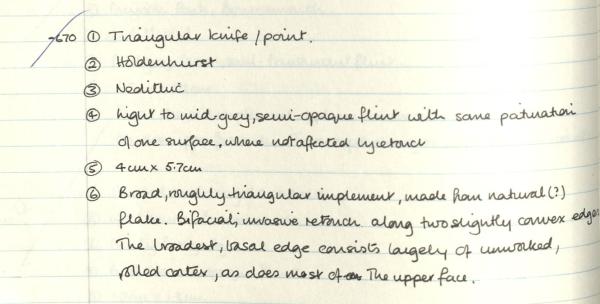 -670 ① Triangular knife/point.
② Holdenhurst
③ Neolithic
④ Light to mid-grey, semi-opaque flint with some patination
of one surface, where not affected by retouch
⑤ 4cm x 5.7cm
⑥ Broad, roughly triangular implement, made from natural(?)
flake. Bifacial, invasive retouch along two slightly convex edges
The broadest, basal edge consists largely of unworked,
rolled cortex, as does most of The upper face.